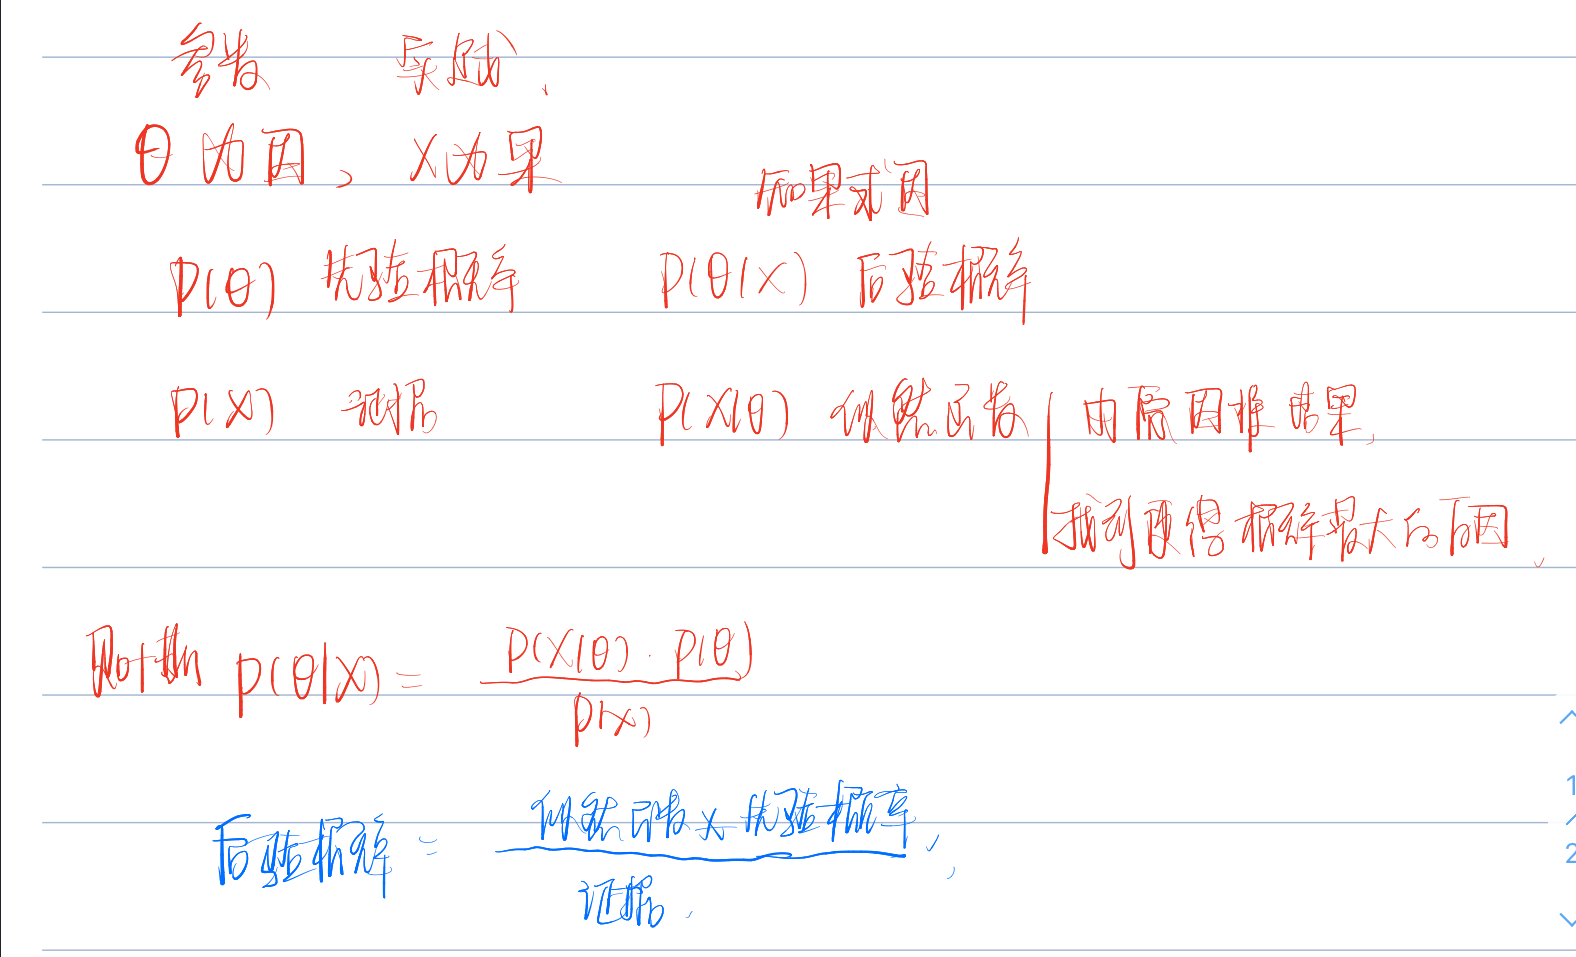 参数
θ为因、X为果
知果求因
P(θ) 先验概率 P(θ|X) 后验概率
P(X) 证据 P(X|θ) 似然函数 由原因推结果,
找到使得概率最大的原因.
P(θ|X) = P(X|θ)·P(θ) / P(X)
后验概率 = 似然函数 × 先验概率 / 证据.
1
2